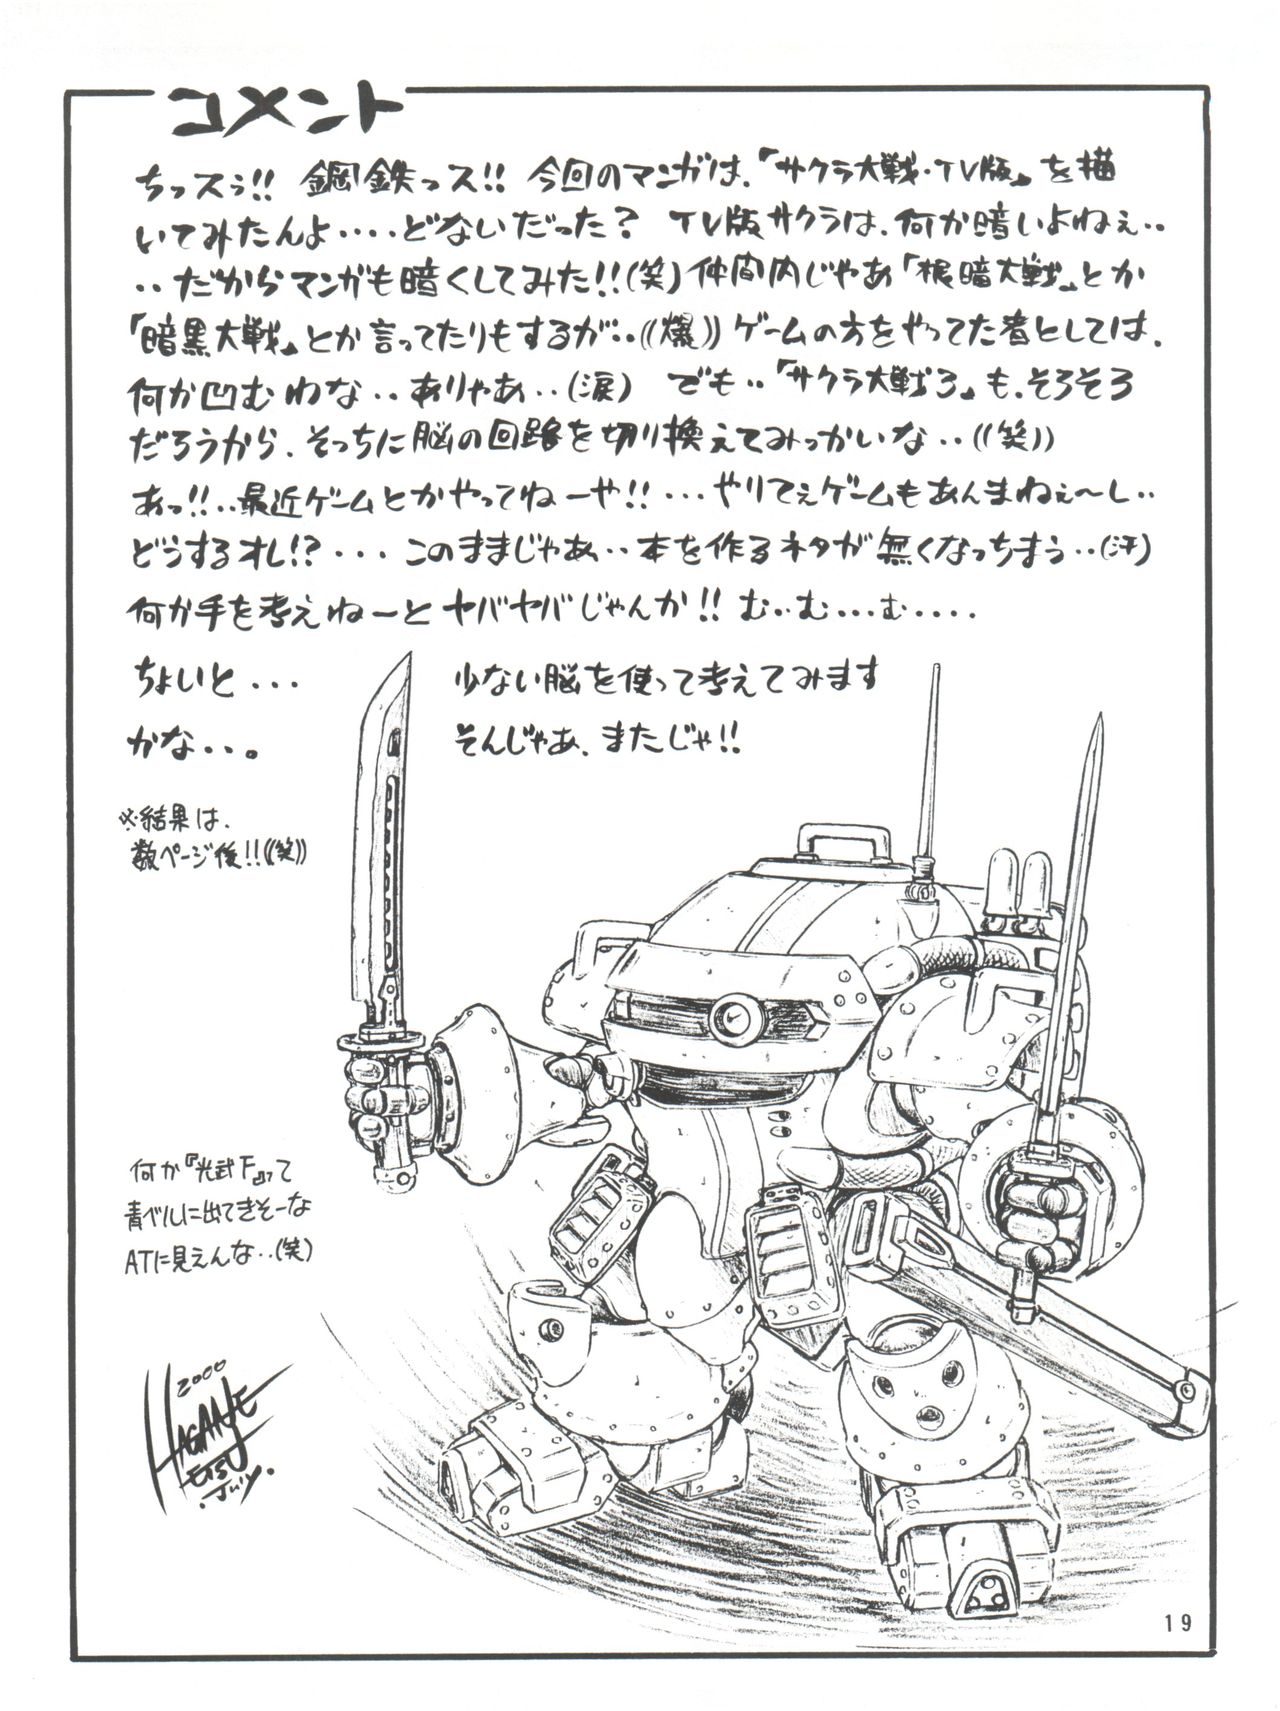 コメント
ちっスぅ!! 鋼鉄っス!! 今回のマンガは、「サクラ大戦・TV版」を描
いてみたんよ‥‥どないだった? TV版サクラは、何か暗いよねぇ‥
‥だからマンガも暗くしてみた!!(笑)仲間内じゃあ「根暗大戦」とか
「暗黒大戦」とか言ってたりもするが‥((爆))ゲームの方をやってた者としては、
何か凹むわな‥ありゃあ‥(涙) でも‥「サクラ大戦3」も、そろそろ
だろうから、そっちに脳の回路を切り換えてみっかいな‥((笑))
あっ!!‥最近ゲームとかやってねーや!!・・・やりてぇゲームもあんまねぇ〜し‥
どうするオレ!?・・・このままじゃあ‥本を作るネタが無くなっちまう‥(汗)
何か手を考えねーとヤバヤバじゃんか!! む‥む・・・む・・・・
ちょいと・・・ 少ない脳を使って考えてみます
かな・・。 そんじゃあ、またじゃ!!
※結果は、
数ページ後!!((笑))
何か『光武F』って
青ベルに出てきそーな
ATに見えんな‥(笑)
2000
HAGANE
ETSU
July.
19